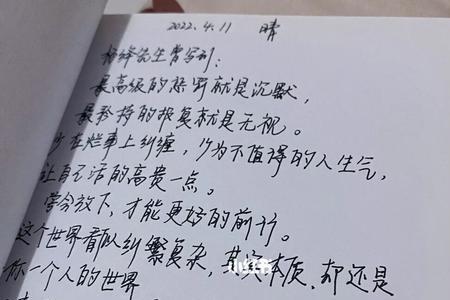 2022.4.11 晴
杨绛先生曾写到：
最高级的惩罚就是沉默，
最矜持的报复就是无视。
少在烂事上纠缠，少为不值得的人生气，
让自己活的高贵一点。
学会放下，才能更好的前行。
这个世界看似纠繁复杂，其实本质，却还是
你一个人的世界
小红书